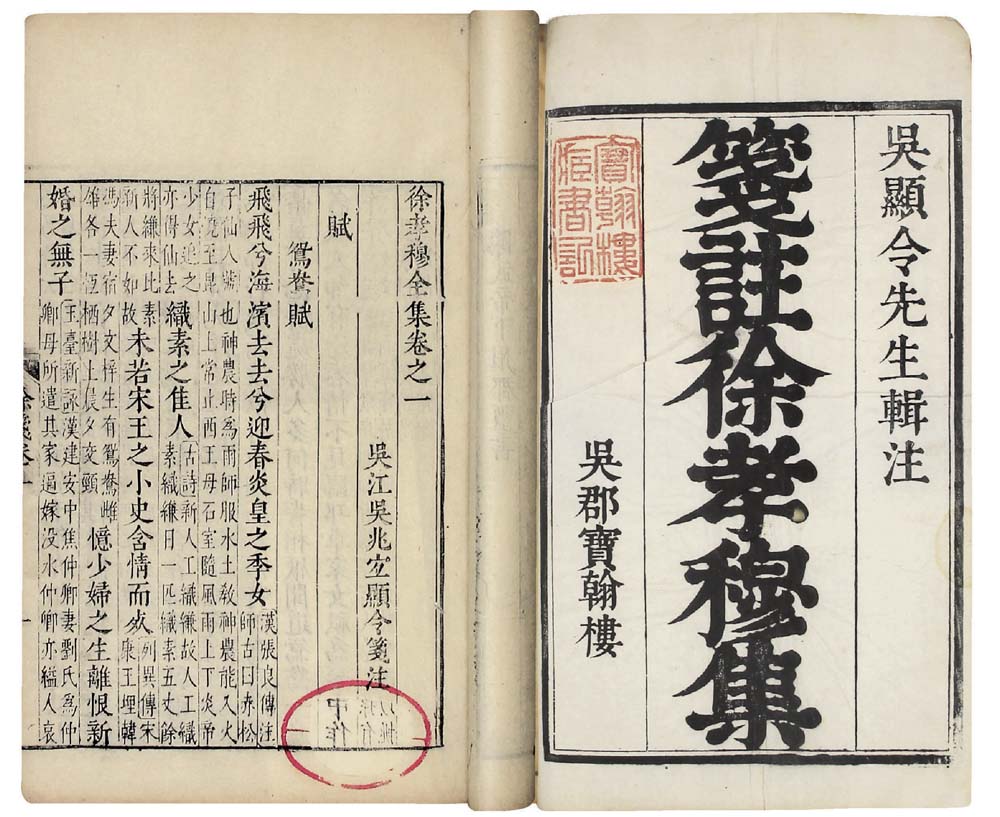 吳顯令先生輯注
箋註徐孝穆集
吳郡寶翰樓
寶翰樓
藏書記
徐孝穆全集卷之一
吳江吳兆宜顯令箋注
賦
鴛鴦賦
飛飛兮海濱去去兮迎春炎皇之季女漢張良傳注師古曰赤松
子仙人號也神農時為雨師服水土敎神農能入火自燒至崑山上常止西王母石室隨風雨上下炎帝
少女追之亦得仙去織素之佳人古詩新人工織縑故人工織素織縑日一匹織素五丈餘
將縑來比素新人不如故未若宋王之小史含情而死列異傳宋康王埋韓
馮夫妻宿夕文梓生有鴛鴦雌雄各一恒栖樹上晨夕交頸憶少婦之生離恨新
婚之無子玉臺新詠漢建安中焦仲卿妻劉氏為仲卿母所遣其家逼嫁没水仲卿亦縊人哀